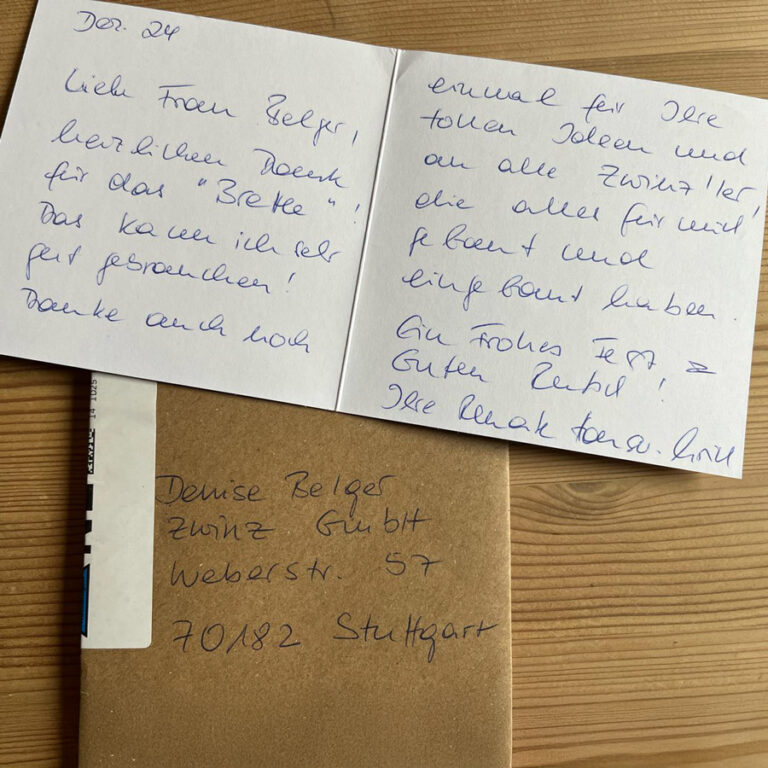 Dez. 24
Liebe Frau Belger,
herzlichen Dank
für das "Brettle"!
Das kann ich sehr
gut gebrauchen!
Danke auch noch
einmal für Ihre
tollen Ideen und
an alle Zwinz'ler,
die alles für mich
gebaut und
eingebaut haben.
Ein Frohes Fest &
Guten Rutsch!
Ihre Renate
Denise Belger
Zwinz GmbH
Weberstr. 57
70182 Stuttgart